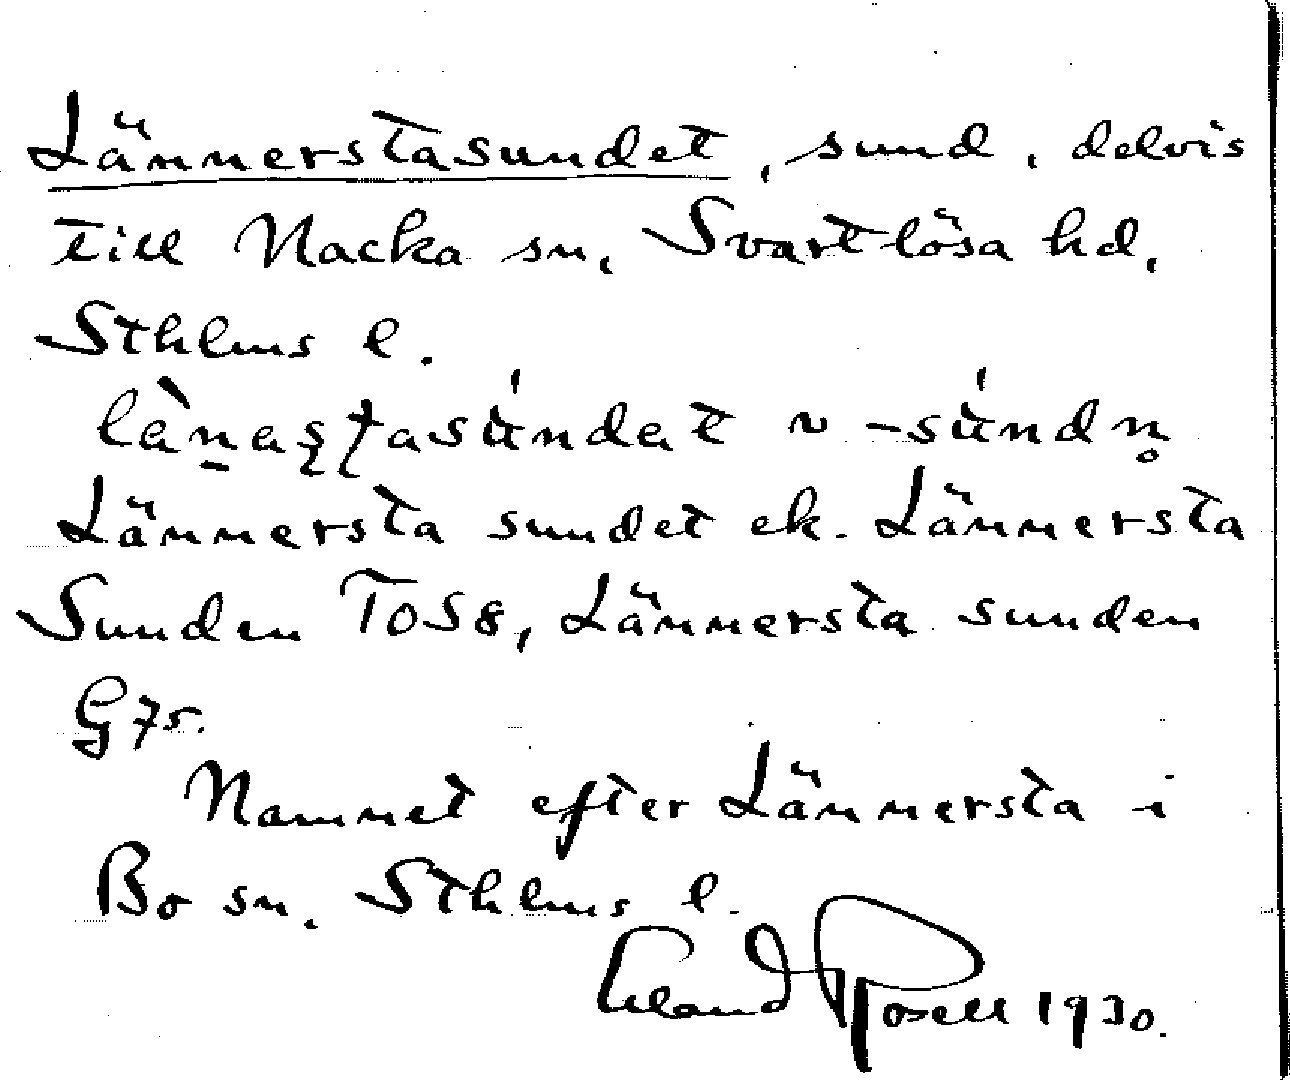 Lännerstasundet, sund, delvis
till Nacka sn, Svartlösa hd,
Sthlms l.
sundet ~ -sundn̥
Lännersta sundet ek. Lännersta
Sunden TOS8, Lännersta sunden
G75.
Namnet efter Lännersta i
Bo sn, Sthlms l.
Erland Rosell 1930.